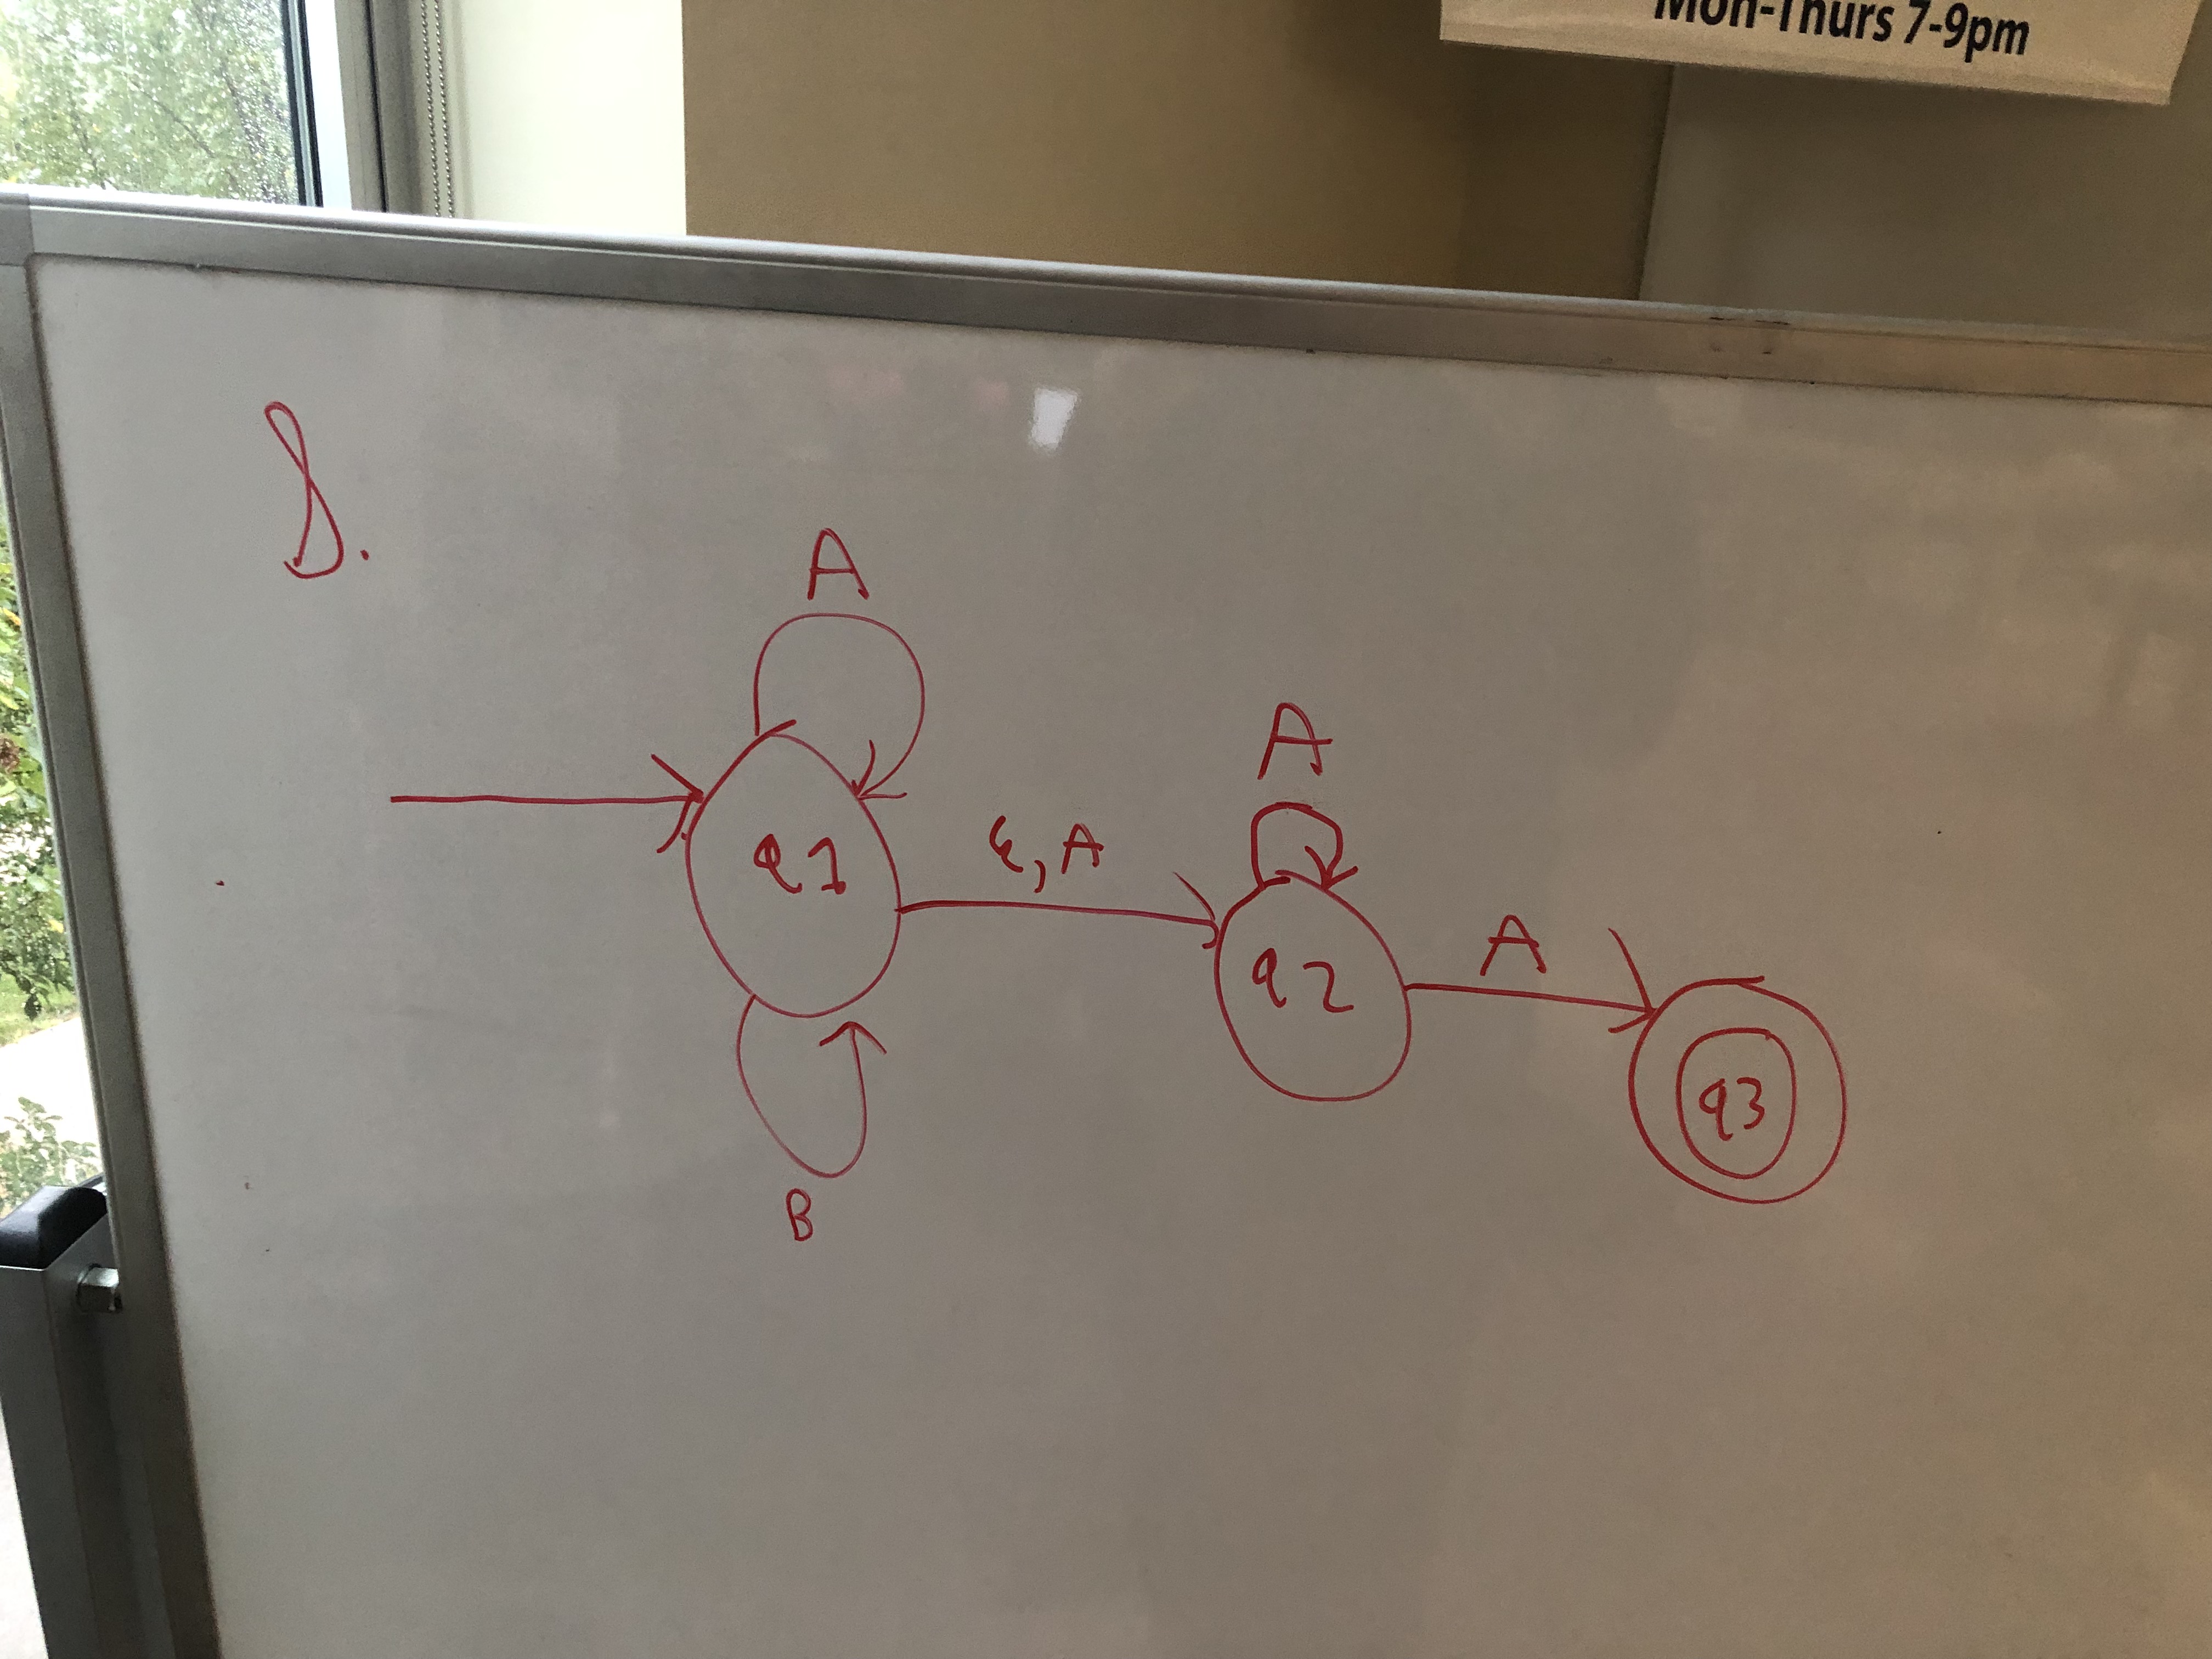 Mon-Thurs 7-9pm
8.
A
A
q1
ε, A
A
q2
q3
B